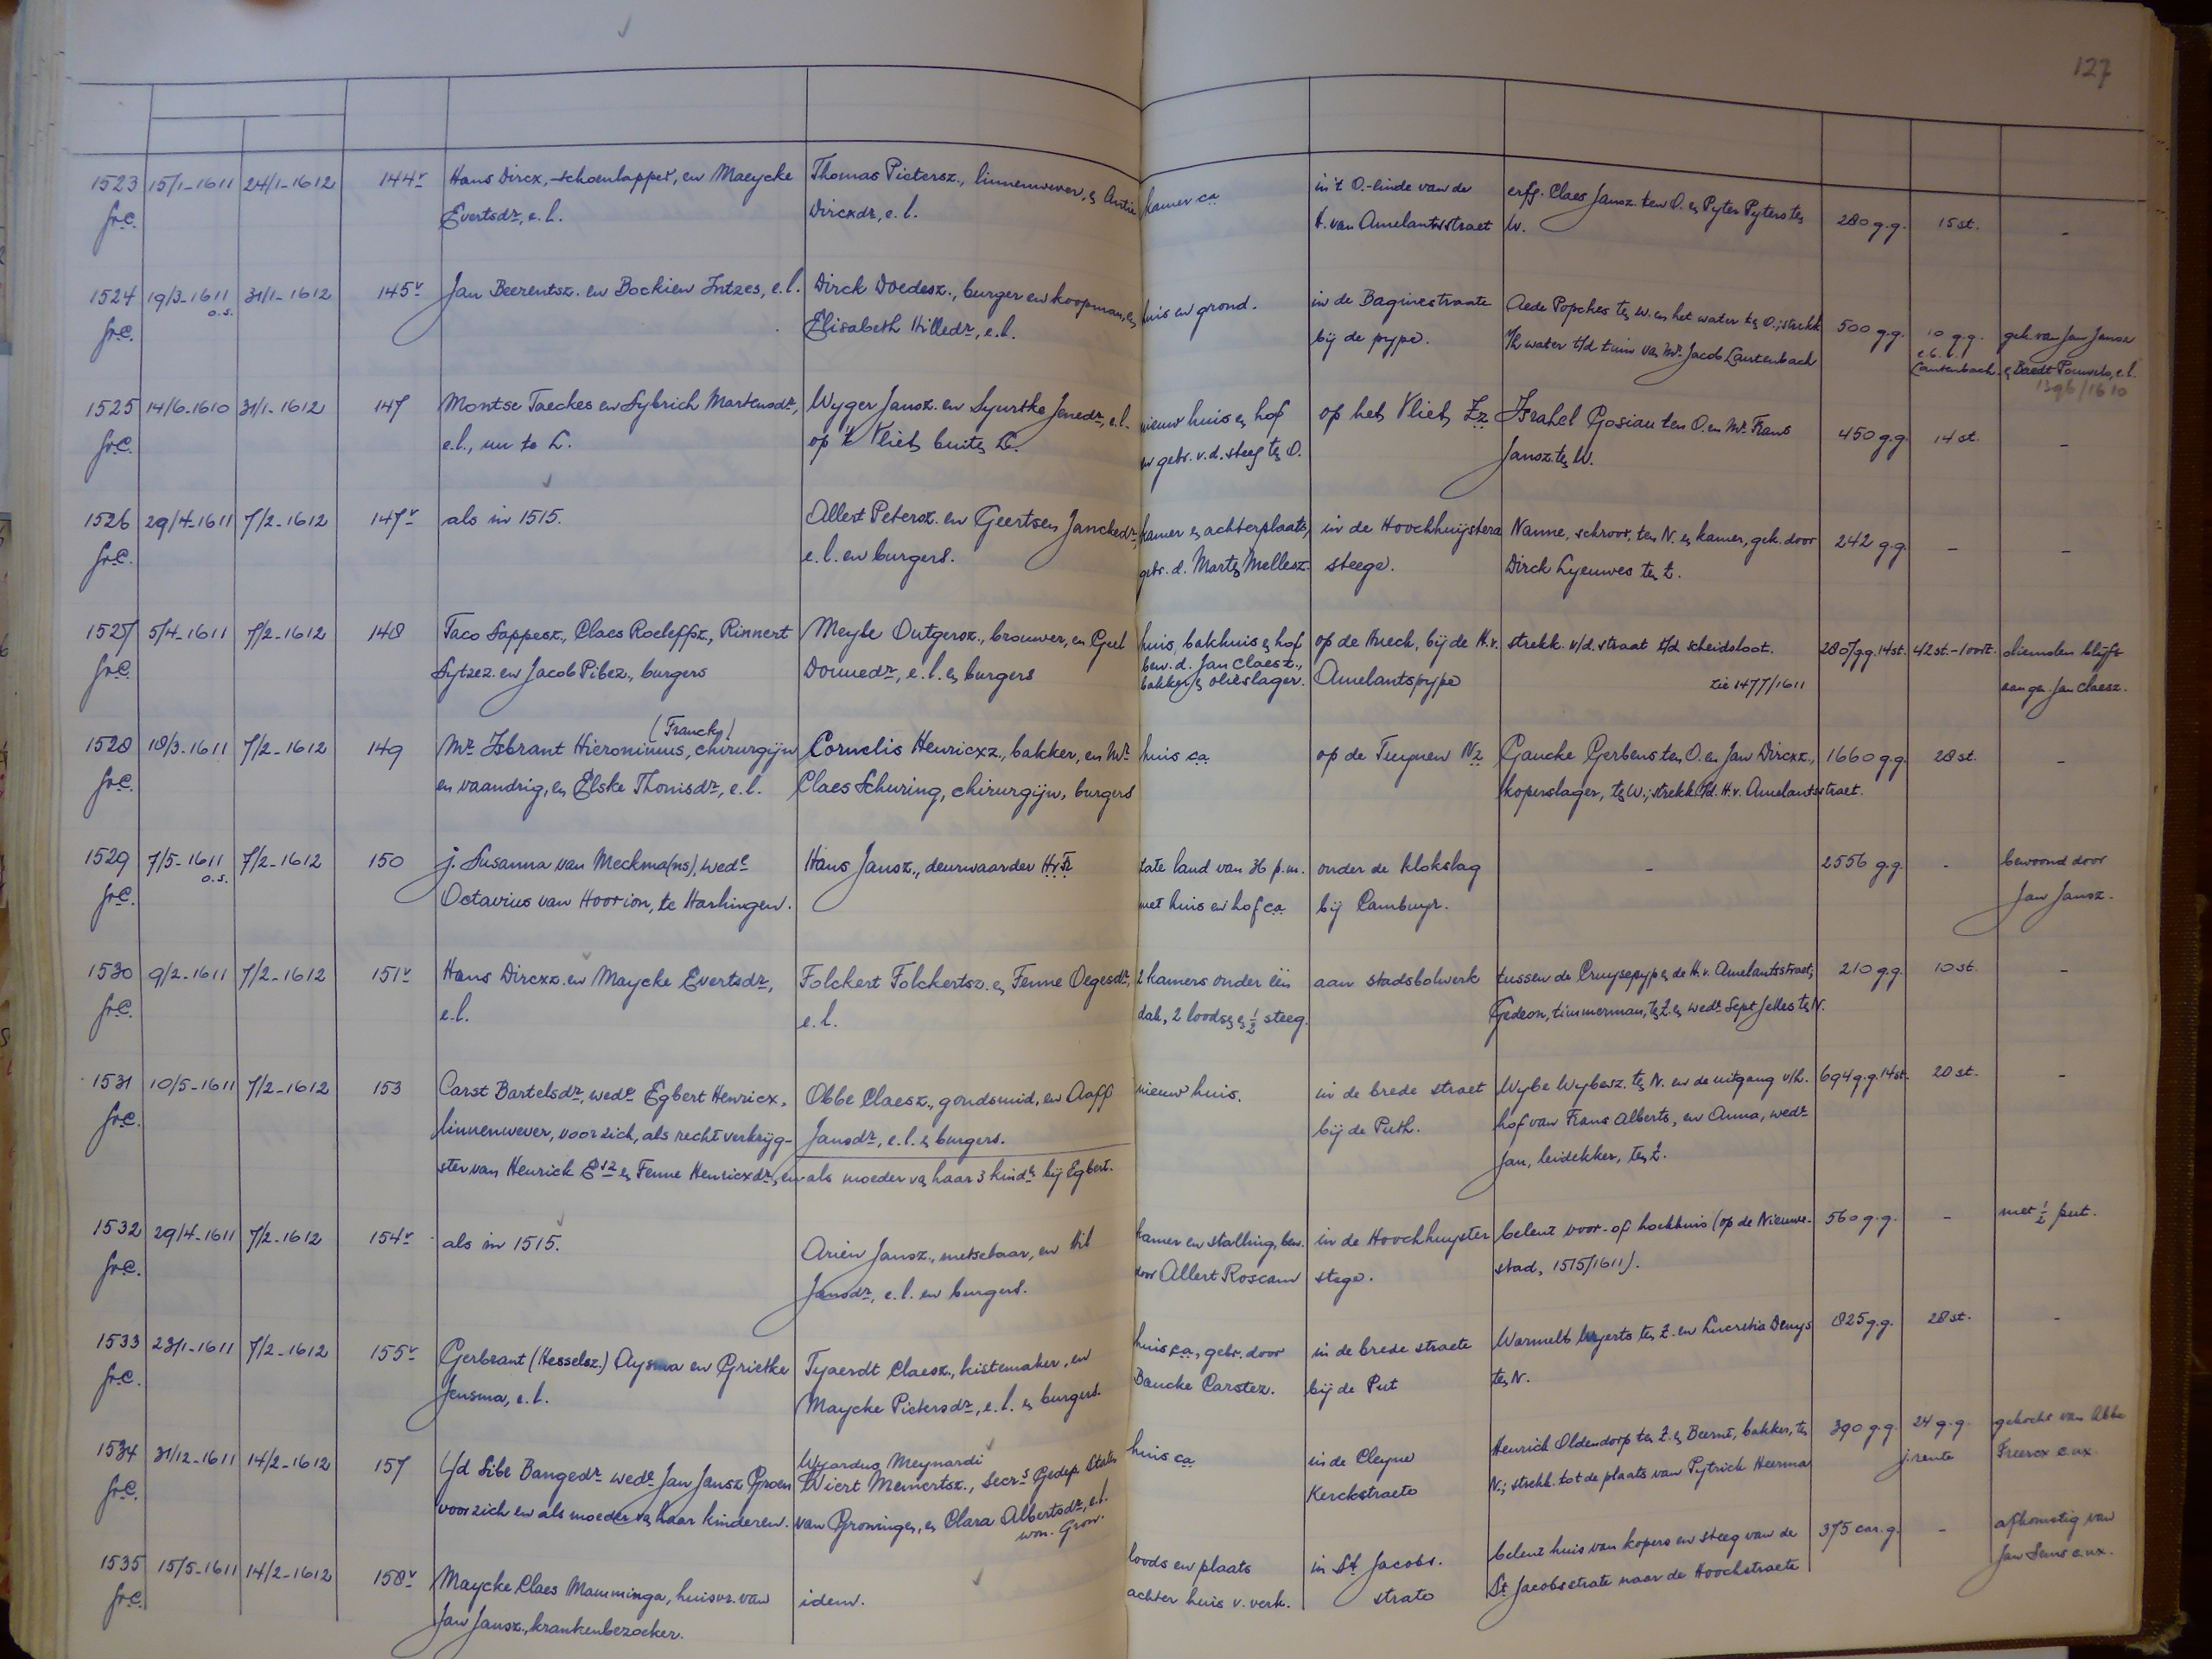 127
1523 15/1-1611 24/1-1612 144v Hans Dircx, schoenlapper, en Maeycke Thomas Pietersz., linnenwever, en Antie kamer ca in 't O.-einde van de erfg. Claes Jansz. ten O. en Pyter Pyters ten 280 g.g. 15 st. -
fr.e. Evertsdr, e.l. Dircxdr, e.l. H. van Amelantsstraet W.
1524 19/3-1611 31/1-1612 145v Jan Beerentsz. en Bockien Intzes, e.l. Dirck Doedesz., burger en koopman, en huis en grond. in de Baginestraate Aede Popckes ten W. en het water ten O.; strekk. 500 g.g. 10 g.g. gek. van Jan Jansz
fr.e. o.s. Elisabeth Hilledr, e.l. bij de pype. water t/d tuin van Mr. Jacob Lautenbach e.b.l. Lautenbach. en Baedt Pouwels, e.l.
1396/1610
1525 14/6-1610 31/1-1612 147 Montse Taeckes en Sybrich Martensdr, Wyger Jansz. en Syurtke Jenedr, e.l. nieuw huis en hof op het Vliet Zz Israhel Gosiau ten O. en Mr. Frans 450 g.g. 14 st. -
fr.e. e.l., nu te L. op 't Vliet buiten L. en gebr. v.d. steeg ten O. Jansz. ten W.
1526 29/4-1611 7/2-1612 147v als in 1515. Allert Petersz. en Geertsen Janckedr, kamer en achterplaats, in de Hoochhuijstera Nanne, schroor, ten N. en kamer, gek. door 242 g.g. - -
fr.e. e.l. en burgers. gebr. d. Marten Mellesz. steege. Dirck Lyeuwes ten Z.
1527 5/4-1611 7/2-1612 148 Taco Sappesz., Claes Roeleffz., Rinnert Meyle Outgersz., brouwer, en Geel huis, bakhuis en hof op de Meek, bij de H.v. strekk. v/d. straet t/d scheidsloot. 287 gg. 14 st. 42 st.-1 oort. diensten blijft
fr.e. Sytzez. en Jacob Pibez., burgers Douuedr, e.l. en burgers bew. d. Jan Claesz., bakker en olieslager. Amelantspype zie 1477/1611 aan gen Jan Claesz.
1528 18/3-1611 7/2-1612 149 Mr. Isbrant Hieronimus, (Francken) chirurgijn Cornelis Henricxz., bakker, en Mr. huis ca op de Tuynen Nz Gaucke Gerbens ten O. en Jan Dircxz., 1660 g.g. 28 st. -
fr.e. en vaandrig, en Elske Thonisdr, e.l. Claes Schuring, chirurgijn, burgers koperslager, ten W.; strekk. t/d. H.v. Amelantsstraet.
1529 7/5-1611 7/2-1612 150 j. Susanna van Meckma(ns), wede Hans Jansz., deurwaarder HvFr. tate land van 36 p.m. onder de klokslag - 2556 g.g. - bewoond door
fr.e. o.s. Octavius van Hoorion, te Harlingen. met huis en hof ca bij Cambuyr. Jan Jansz.
1530 9/2-1611 7/2-1612 151v Hans Dircxz. en Maycke Evertsdr, Folckert Folckertsz. en Fenne Oegesdr, 2 kamers onder één aan stadsbolwerk tussen de Cruysepyp en de H.v. Amelantsstraet; 210 g.g. 10 st. -
fr.e. e.l. e.l. dak, 2 loodsen en ½ steeg. Gedeon, timmerman, ten Z. en wede Sept Jelles ten N.
1531 10/5-1611 7/2-1612 153 Carst Bartelsdr, wede Egbert Henricx, Obbe Claesz., goudsmid, en Aaff nieuw huis. in de brede straet Wybe Wybesz. ten N. en de uitgang v/h. 694 g.g. 14 st. 20 st. -
fr.e. linnenwever, voor zich, als recht verkrijg- Jansdr, e.l. en burgers. bij de Puth. hof van Frans Alberts, en Anna, wede
ster van Henrick Esz en Fenne Henricxdr, en als moeder van haar 3 kindn bij Egbert. Jan, leidekker, ten Z.
1532 29/4-1611 7/2-1612 154v als in 1515. Arien Jansz., metselaar, en Hil kamer en stalling, bew. in de Hoochhuyster belent voor- of hoekhuis (op de Nieuwe- 560 g.g. - met ½ put.
fr.e. Jansdr, e.l. en burgers. door Allert Roscam stege. stad, 1515/1611).
1533 23/1-1611 7/2-1612 155v Gerbrant (Hesselsz.) Aysma en Grietke Tyaerdt Claesz., kistemaker, en huis ca, gebr. door in de brede straete Warmelt Wyerts ten Z. en Lucretia Denys 825 g.g. 28 st. -
fr.e. Jensma, e.l. Maycke Pietersdr, e.l. en burgers. Baucke Carstez. bij de Put ten N.
1534 31/12-1611 14/2-1612 157 Lyd Sibe Bangedr wede Jan Jansz Groen Wyardus Meynardi Wiert Meinertsz., Secrs Gedep. Staten huis ca in de Cleyne Henrich Oldendorp ten Z. en Beernt, bakker, ten 390 g.g. 24 g.g. gekocht van Abbe
fr.e. voor zich en als moeder van haar kinderen. van Groningen, en Clara Albertsdr, e.l. won. Gron. Kerckstraete N.; strekk. tot de plaats van Pytrick Heerma j.rente Freercx c.ux.
1535 15/5-1611 14/2-1612 158v Maycke Claes Mamminga, huisvr. van idem. loods en plaats in St Jacobs. belent huis van kopers en steeg van de 375 car.g. - afkomstig van
fr.e. Jan Jansz., krankenbezoeker. achter huis v. verk. strate St. Jacobsstrate naar de Hoochstraete Jan Sems c.ux.